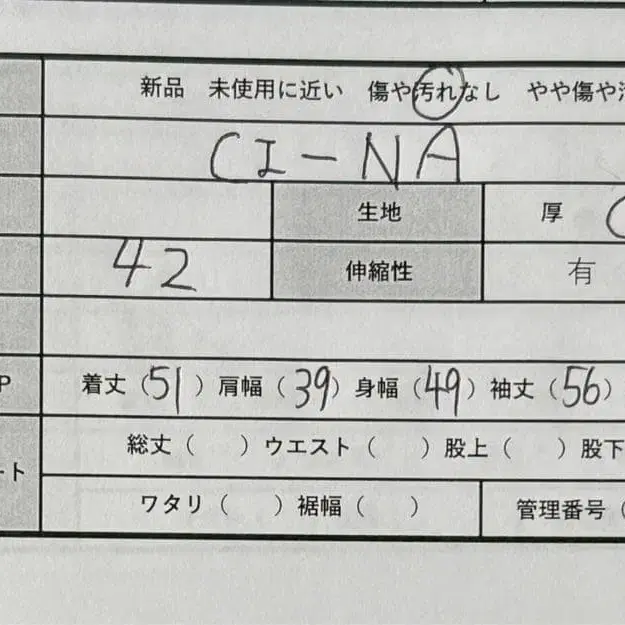 新品 未使用に近い 傷や汚れなし やや傷や
CI-NA
生地 厚
42 伸縮性 有
P 着丈（51）肩幅（39）身幅（49）袖丈（56）
総丈（ ）ウエスト（ ）股上（ ）股下
ート
ワタリ（ ）裾幅（ ） 管理番号（